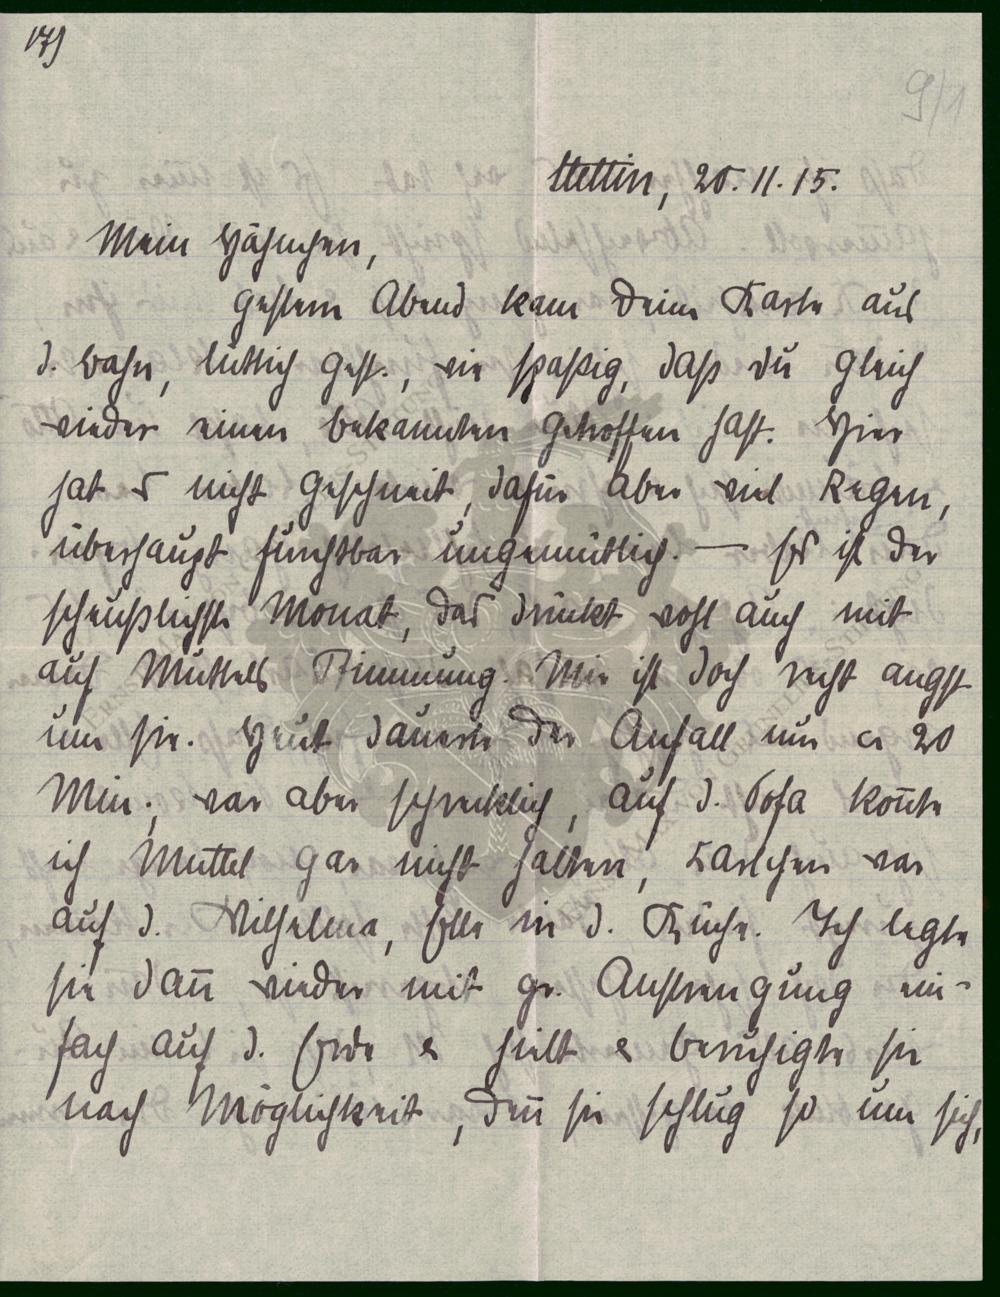 179
9/1
Stettin, 20. 11. 15.
Mein Hähnchen,
gestern Abend kam Deine Karte aus
d. Bahn, Lüttich gest., wie spaßig, daß Du gleich
wieder einen Bekannten getroffen hast. Hier
hat es nicht geschneit, dafür aber viel Regen,
überhaupt furchtbar ungemütlich. — Es ist der
scheußlichste Monat, das drückt wohl auch mit
auf Muttels Stimmung. Mir ist doch recht angst
um sie. Heut dauerte der Anfall nur ca 20
Min., war aber schrecklich, auf d. Sofa konnte
ich Muttel gar nicht halten, Karlchen war
auf d. Wilhelma, Elle in d. Küche. Ich legte
sie dann wieder mit gr. Anstrengung ein-
fach auf d. Erde & hielt & beruhigte sie
nach Möglichkeit, denn sie schlug so um sich,